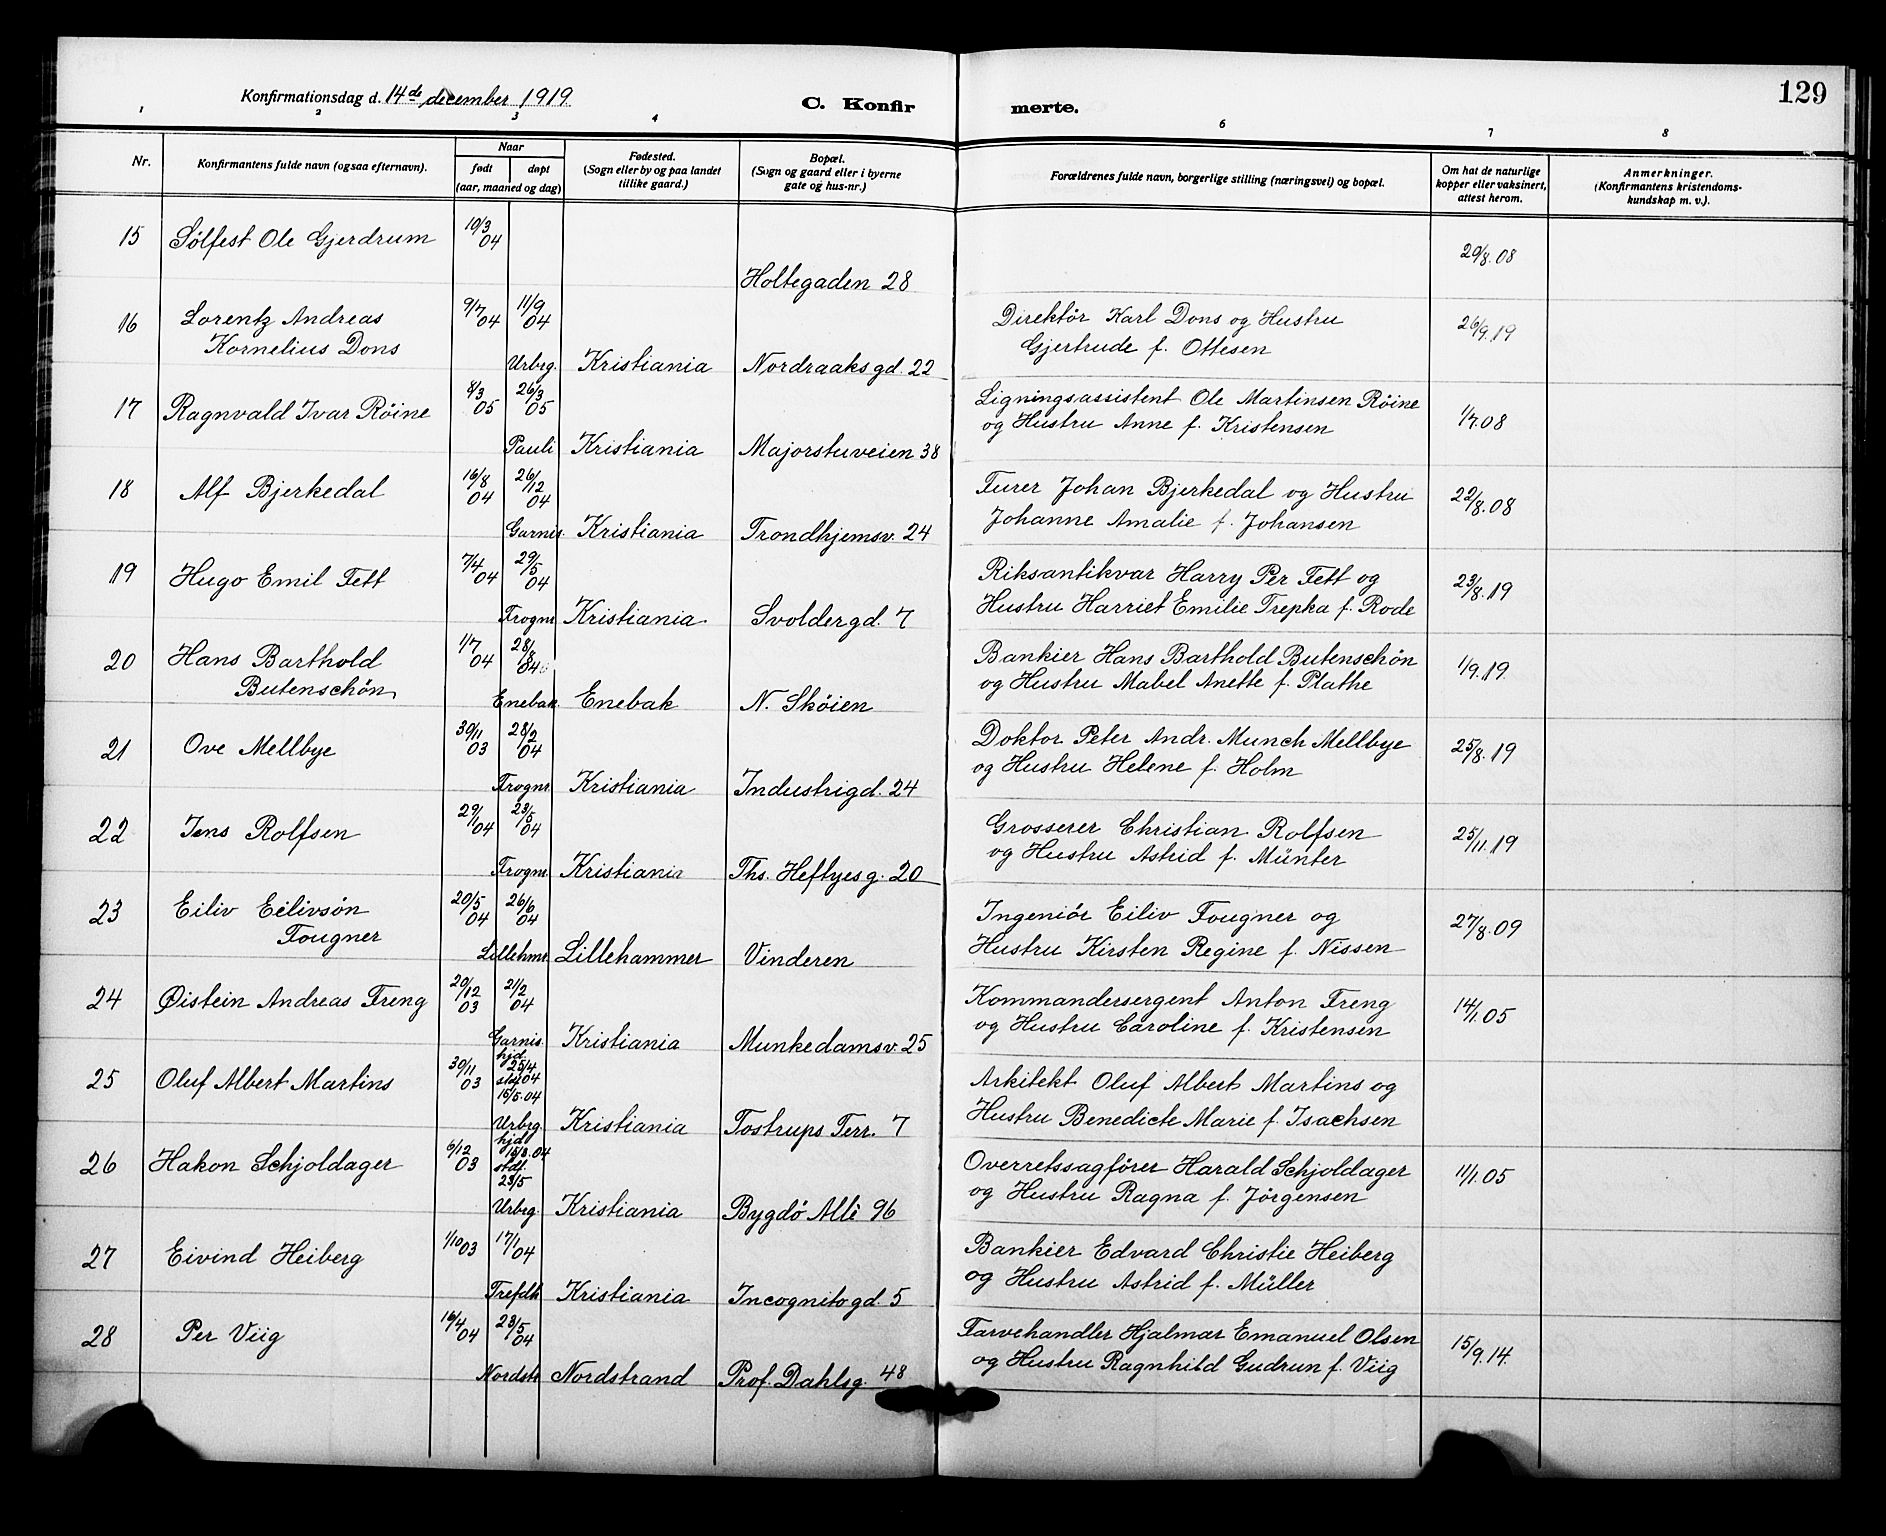 129
Konfirmationsdag d. 14de december 1919.
C. Konfir merte.
1 2 3 4 6 7 8
Nr. Konfirmantens fulde navn (ogsaa efternavn). Naar født døpt (aar, maaned og dag) Fødested. (Sogn eller by og paa landet tillike gaard.) Bopæl. (Sogn og gaard eller i byerne gate og hus-nr.) Forældrenes fulde navn, borgerlige stilling (næringsvei) og bopæl. Om hat de naturlige kopper eller vaksinert, attest herom. Anmerkninger. (Konfirmantens kristendoms-kundskap m. v.).
15 Sölfest Ole Gjerdrum 10/3 04 29/8.08
Holtegaden 28
16 Lorentz Andreas 9/7 04 11/9 04 Direktör Karl Dons og Hustru 26/9.19
Kornelius Dons Gjertrude f. Ottesen
Urbrg. Kristiania Nordraaksgd. 22
17 Ragnvald Ivar Röine 8/3 05 26/3 05 Ligningsassistent Ole Martinsen Röine 1/7.08
og Hustru Anne f. Kristensen
Pauli Kristiania Majorstuveien 38
18 Alf Bjerkedal 16/8 04 26/12 04 Furer Johan Bjerkedal og Hustru 22/8.08
Johanne Amalie f. Johansen
Garnis. Kristiania Trondhjemsv. 24
19 Hugo Emil Fett 7/4 04 29/5 04 Riksantikvar Harry Per Fett og 23/8.19
Hustru Harriet Emilie Trepka f. Rode
Frognr Kristiania. Svoldergd. 7
20 Hans Barthold 1/7 04 28/8 04 Bankier Hans Barthold Butenschön 1/9.19.
Butenschön og Hustru Mabel Anette f. Plathe
Enebak. Enebak N. Sköien
21 Ove Mellbye 30/11 03 28/2 04 Doktor Peter Andr. Munch Mellbye 25/8.19
og Hustru Helene f. Holm
Frognr. Kristiania Industrigd. 24
22 Jens Rolfsen 29/1 04 23/5 04 Grosserer Christian Rolfsen 25/11.19
og Hustru Astrid f. Münter
Frognr. Kristiania Ths. Heftyesg. 20
23 Eiliv Eilivsön 20/5 04 26/6 04 Ingeniör Eiliv Fougner og 27/8.09
Fougner Hustru Kirsten Regine f. Nissen
Lillehmr. Lillehammer Vinderen
24 Øistein Andreas Freng 20/12 03 2/2 04 Kommandersergent Anton Freng 14/1.05
og Hustru Caroline f. Kristensen
Garnis. Kristiania Munkedamsv. 25
25 Oluf Albert Martins 30/11 03 hjd. 25/4 stdf. 04 16/5.04 Arkitekt Oluf Albert Martins og
Hustru Benedicte Marie f. Isachsen
Urbrg. Kristiania Tostrups Terr. 7
26 Hakon Schjoldager 6/12 03 hjd. 15/3.04 stdf. 23/5 Overretssagförer Harald Schjoldager 11/1.05
og Hustru Ragna f. Jörgensen
Urbrg. Kristiania Bygdö Allé 96
27 Eivind Heiberg 1/10 03 17/1 04 Bankier Edvard Christie Heiberg
og Hustru Astrid f. Müller
Trefdh Kristiania Incognitogd. 5
28 Per Viig 16/4 04 23/5 04 Farvehandler Hjalmar Emanuel Olsen 15/9.14.
og Hustru Ragnhild Gudrun f. Viig
Nordstr. Nordstrand Prof. Dahlsg. 48